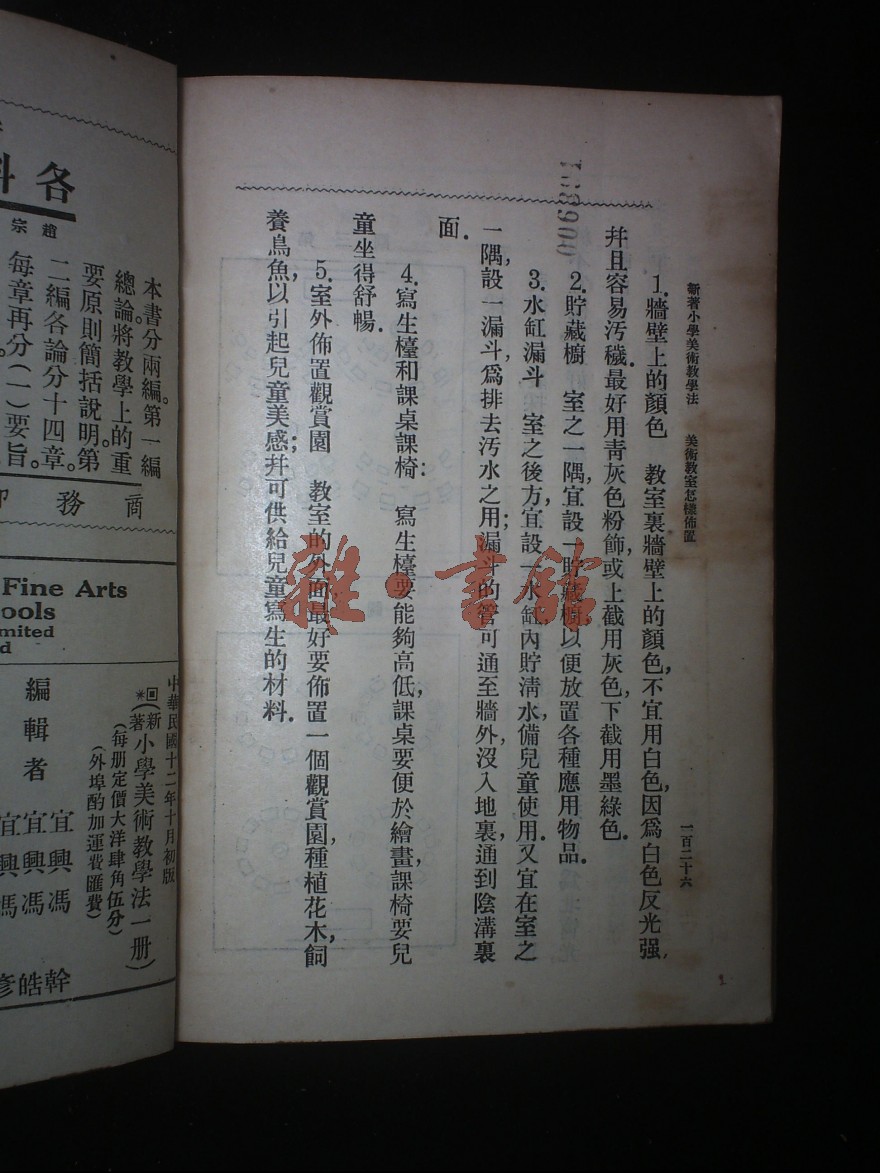 新著小學美術敎學法　美術敎室怎樣佈置　一百二十六
1. 牆壁上的顏色　敎室裏牆壁上的顏色，不宜用白色，因爲白色反光强，
幷且容易汚穢．最好用靑灰色粉飾，或上截用灰色，下截用墨綠色．
2. 貯藏櫥　室之一隅，宜設一貯藏櫥，以便放置各種應用物品．
3. 水缸漏斗　室之後方，宜設一水缸，內貯淸水，備兒童使用．又宜在室之
一隅，設一漏斗，爲排去汚水之用；漏斗的管可通至牆外，沒入地裏，通到陰溝裏
面．
4. 寫生檯和課桌課椅：　寫生檯要能夠高低，課桌要便於繪畫，課椅要兒
童坐得舒暢．
5. 室外佈置觀賞園　敎室的外面，最好要佈置一個觀賞園，種植花木，飼
養鳥魚，以引起兒童美感；幷可供給兒童寫生的材料．
168900
1
雜·書館
各科
趙宗
本書分兩編。第一編
總論。將敎學上的重
要原則簡括說明。第
二編各論。分十四章。
每章再分（一）要旨。
商務印
Fine Arts
ools
mited
d
中華民國十二年十月初版
（新著）小學美術敎學法一册）
（每册定價大洋肆角伍分）
（外埠酌加運費匯費）
編輯者
宜興馮
宜興馮
宜興馮
彥皓幹